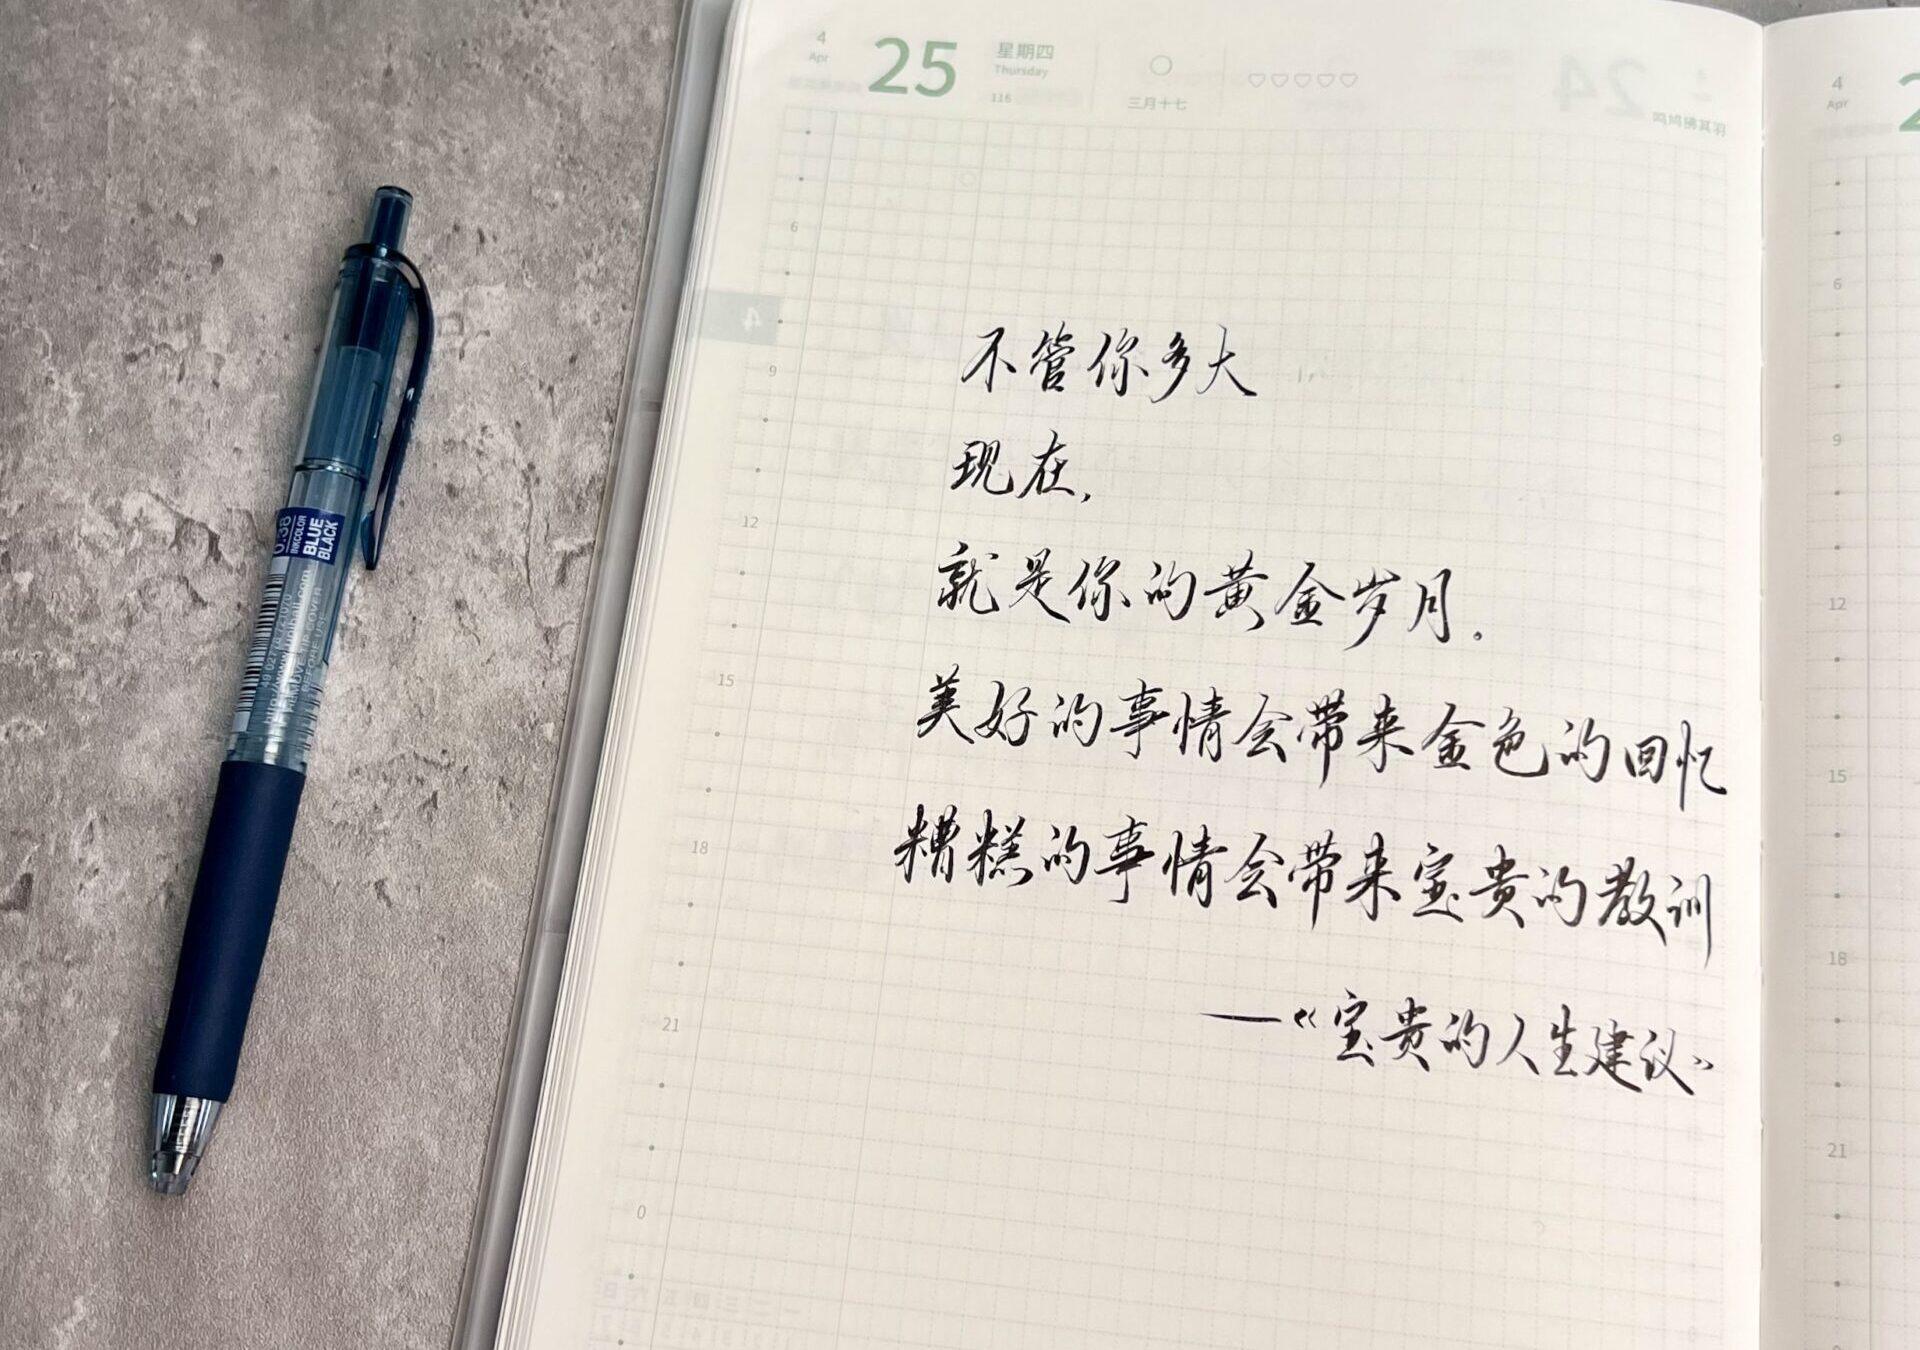 4
Apr
25
星期四
Thursday
116
三月十七
不管你多大
现在,
就是你的黄金岁月.
美好的事情会带来金色的回忆
糟糕的事情会带来宝贵的教训
—《宝贵的人生建议》
6
9
12
15
18
21
0
4
Apr
2
6
9
12
15
18
21
0.38
INKCOLOR
BLUE
BLACK
http://www.uniball.com
REMOVE TIP COVER
BEFORE USE
24
鸣鸠拂其羽
4